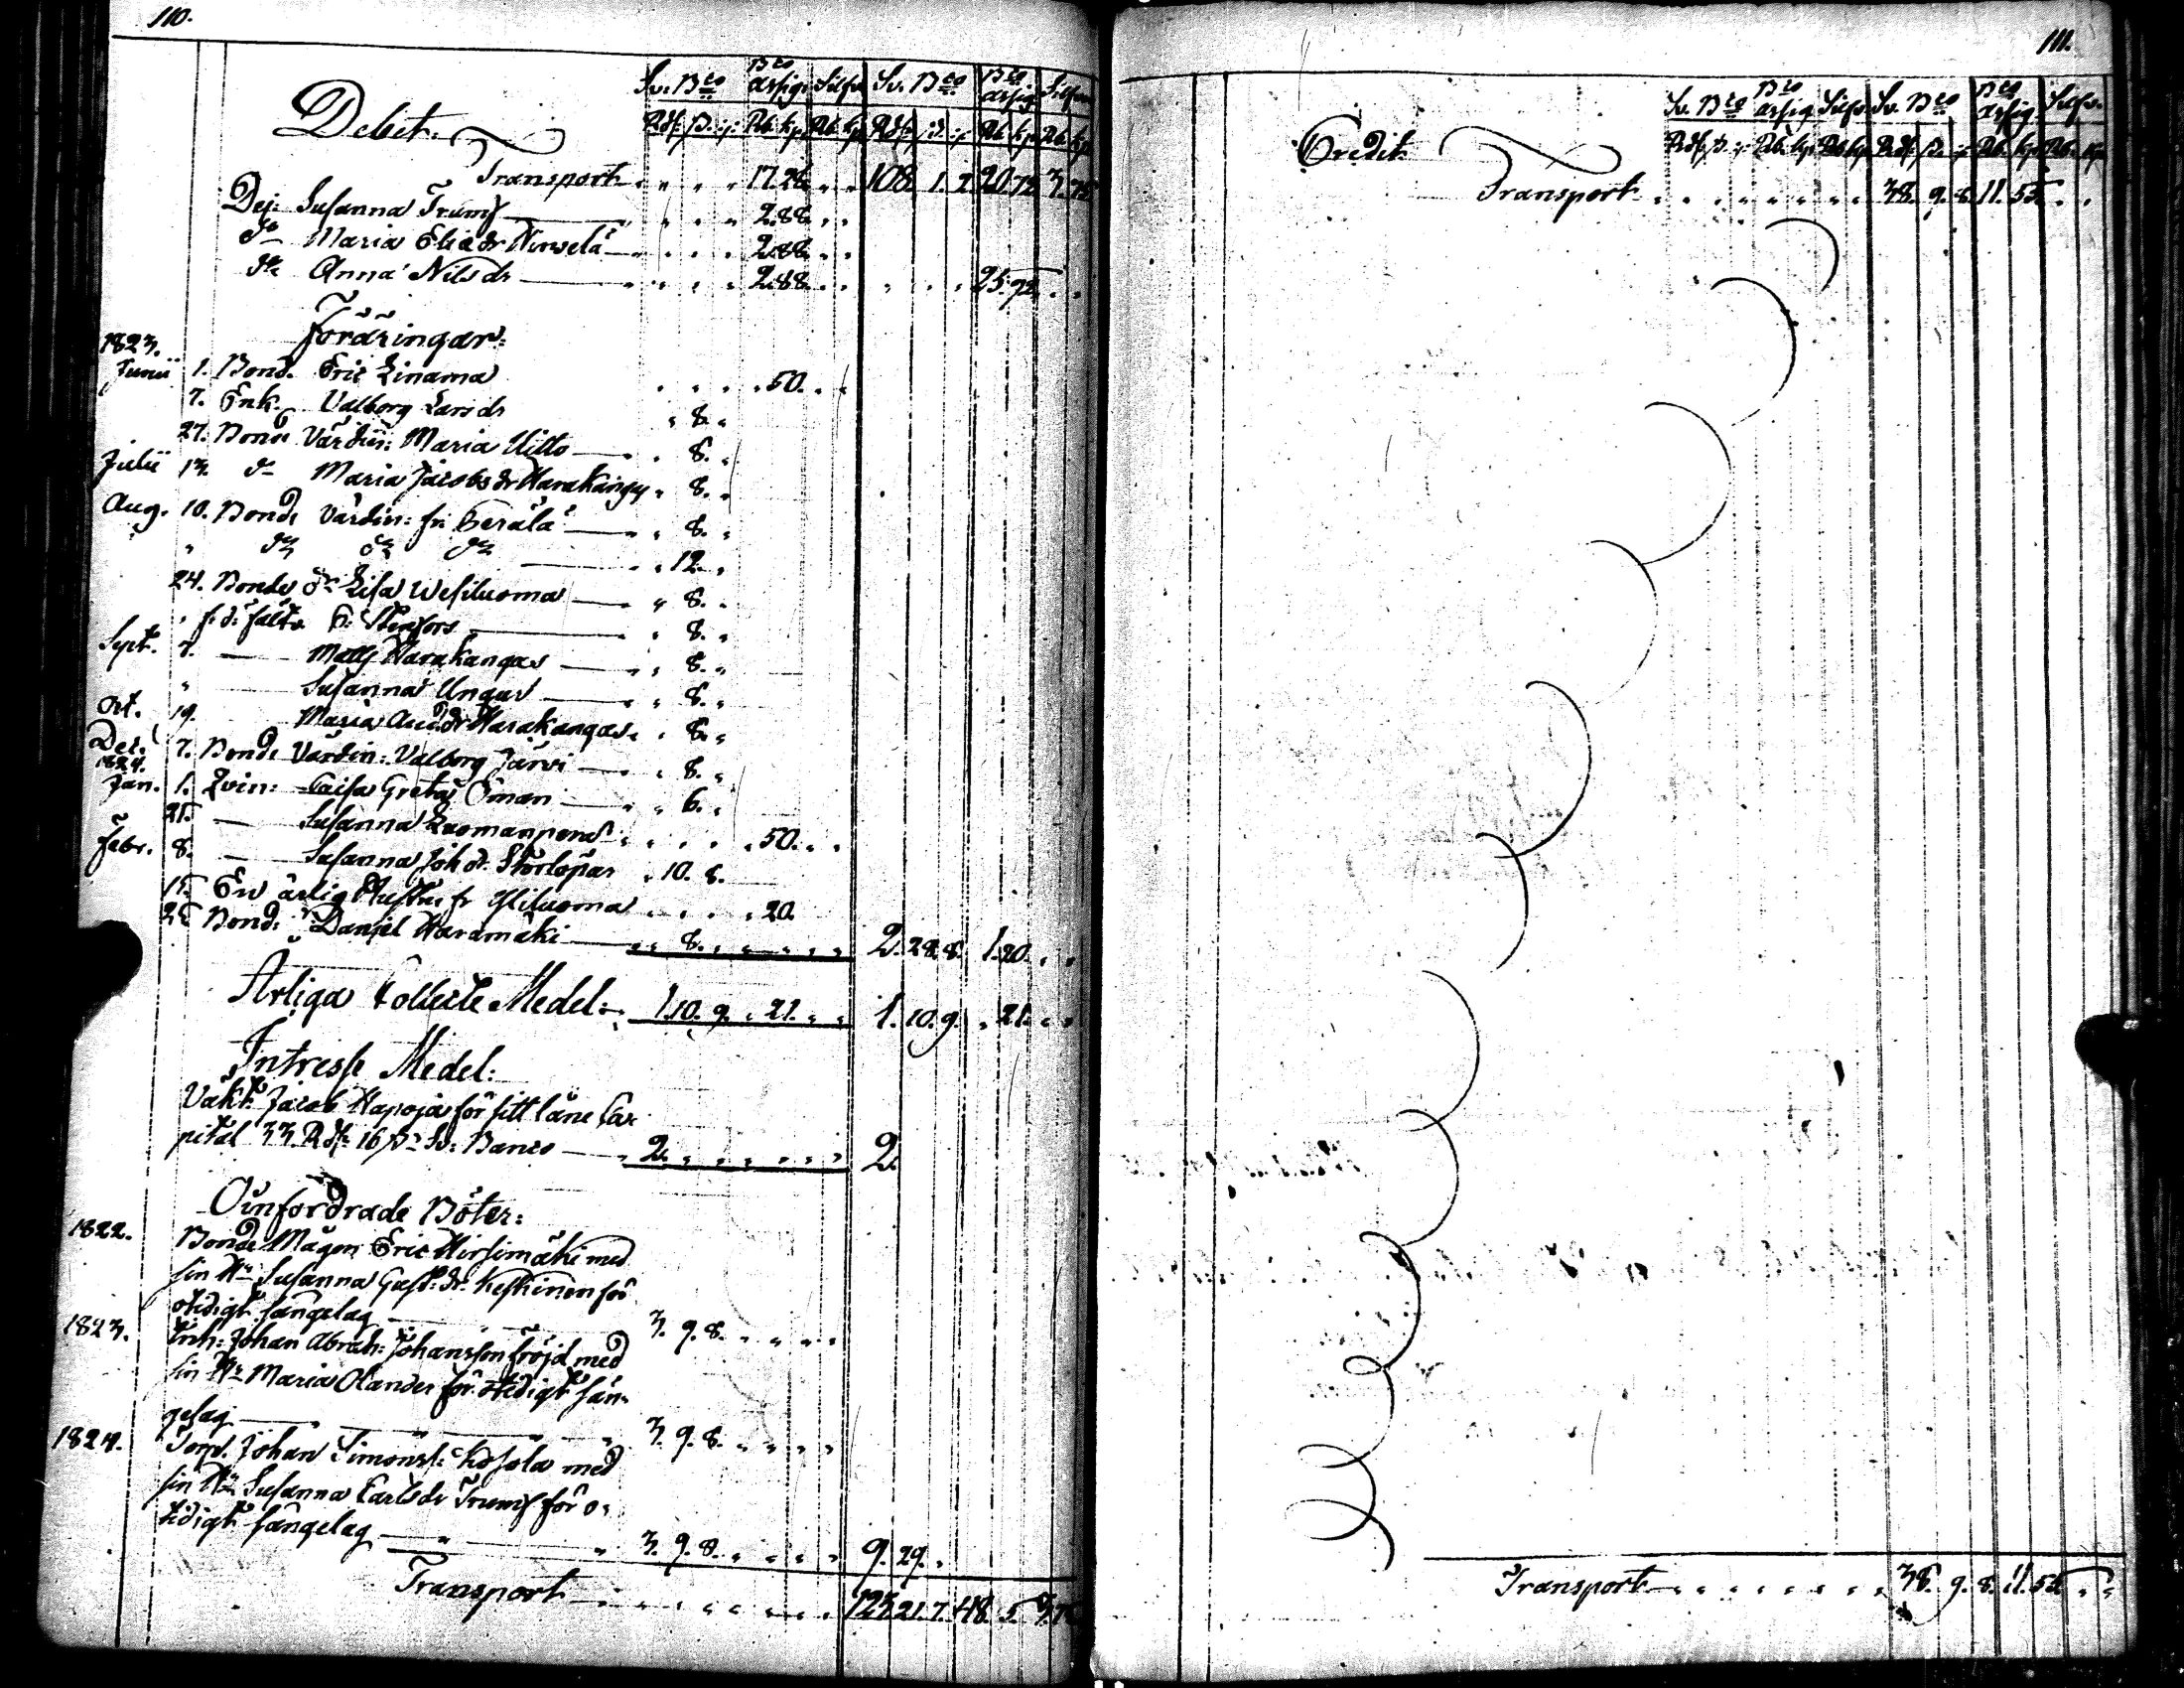 110.
Sv. Bco Bco assig. Silfr. Sv. Bco Bco assig. Silfver
Debet. Rdr ß. rf. Rb. kp. Rb. kp. Rdr ß. rf. Rb. kp. Rb. kp.
Transport 17.28. 108. 1. 2. 20.72. 3.75
Dej: Susanna Trumf 2.88.
do Maria Eliædr 2.88.
do Anna Nilsdr 2.88. 25.72.
Föräringar:
1823.
Junii 1. Bond. Eric Linama 50.
7. Enk. Valborg Larsdr 8.
27. Bond. Värdin: Maria Uitto 8.
Julii 13. do Maria Jacobsdr Harakangas 8.
Aug. 10. Bond. Värdin: fr. Kerälä 8.
" do do do 12.
24. Bonde do Lisa Wesiluoma 8.
" f. d. fältv. Stenfors 8.
Sept. 7. — Matts Harakangas 8.
" — Susanna Ungar 8.
Oct. 19. Maria Andrdr Harakangas 8.
Dec. 7. Bond. Värdin: Valborg Järvi 8.
1824.
Jan. 1. Qvin: Caisa Greta Öman 6.
25. — Susanna Luomanperä 50.
Febr. 8. — Susanna Joh.dr Storlöpar 10. 8.
15. En ärlig Hustru fr Yliluoma 20.
22. Bond: Daniel Haramäki 8. 2. 28. 8. 1.20.
Årliga Collecte Medel: 1.10. 9. 21. 1. 10. 9. 21.
Intresse Medel:
Vakt. Jacob Hapoja för sitt låne Ca-
pital 33 Rdr 16 ß Sv: Banco 2. 2.
Oinfordrade Böter:
1822. Bonde Mågen Eric Hirsimäki med
sin Hu Susanna Gust.dr Keskinen för
otidigt sängelag 3. 9. 8.
1823. Inh: Johan Abrah: Johansson Fröjd med
sin Hu Maria Olander för otidigt sän-
gelag 3. 9. 8.
1824. Torp. Johan Simonss: Kosola med
sin Hu Susanna Carlsdr Trumf för o-
tidigt sängelag 3. 9. 8. 9. 29.
Transport 123.21.7. 48. 5. 3.75
111.
Sv. Bco Bco assig. Silfv. Sv. Bco Bco assig. Silfv.
Credit. Rdr ß. rf. Rb. kp. Rb. kp. Rdr ß. rf. Rb. kp. Rb. kp.
Transport 38. 9. 8. 11. 55.
Transport 38. 9. 8. 11. 55.